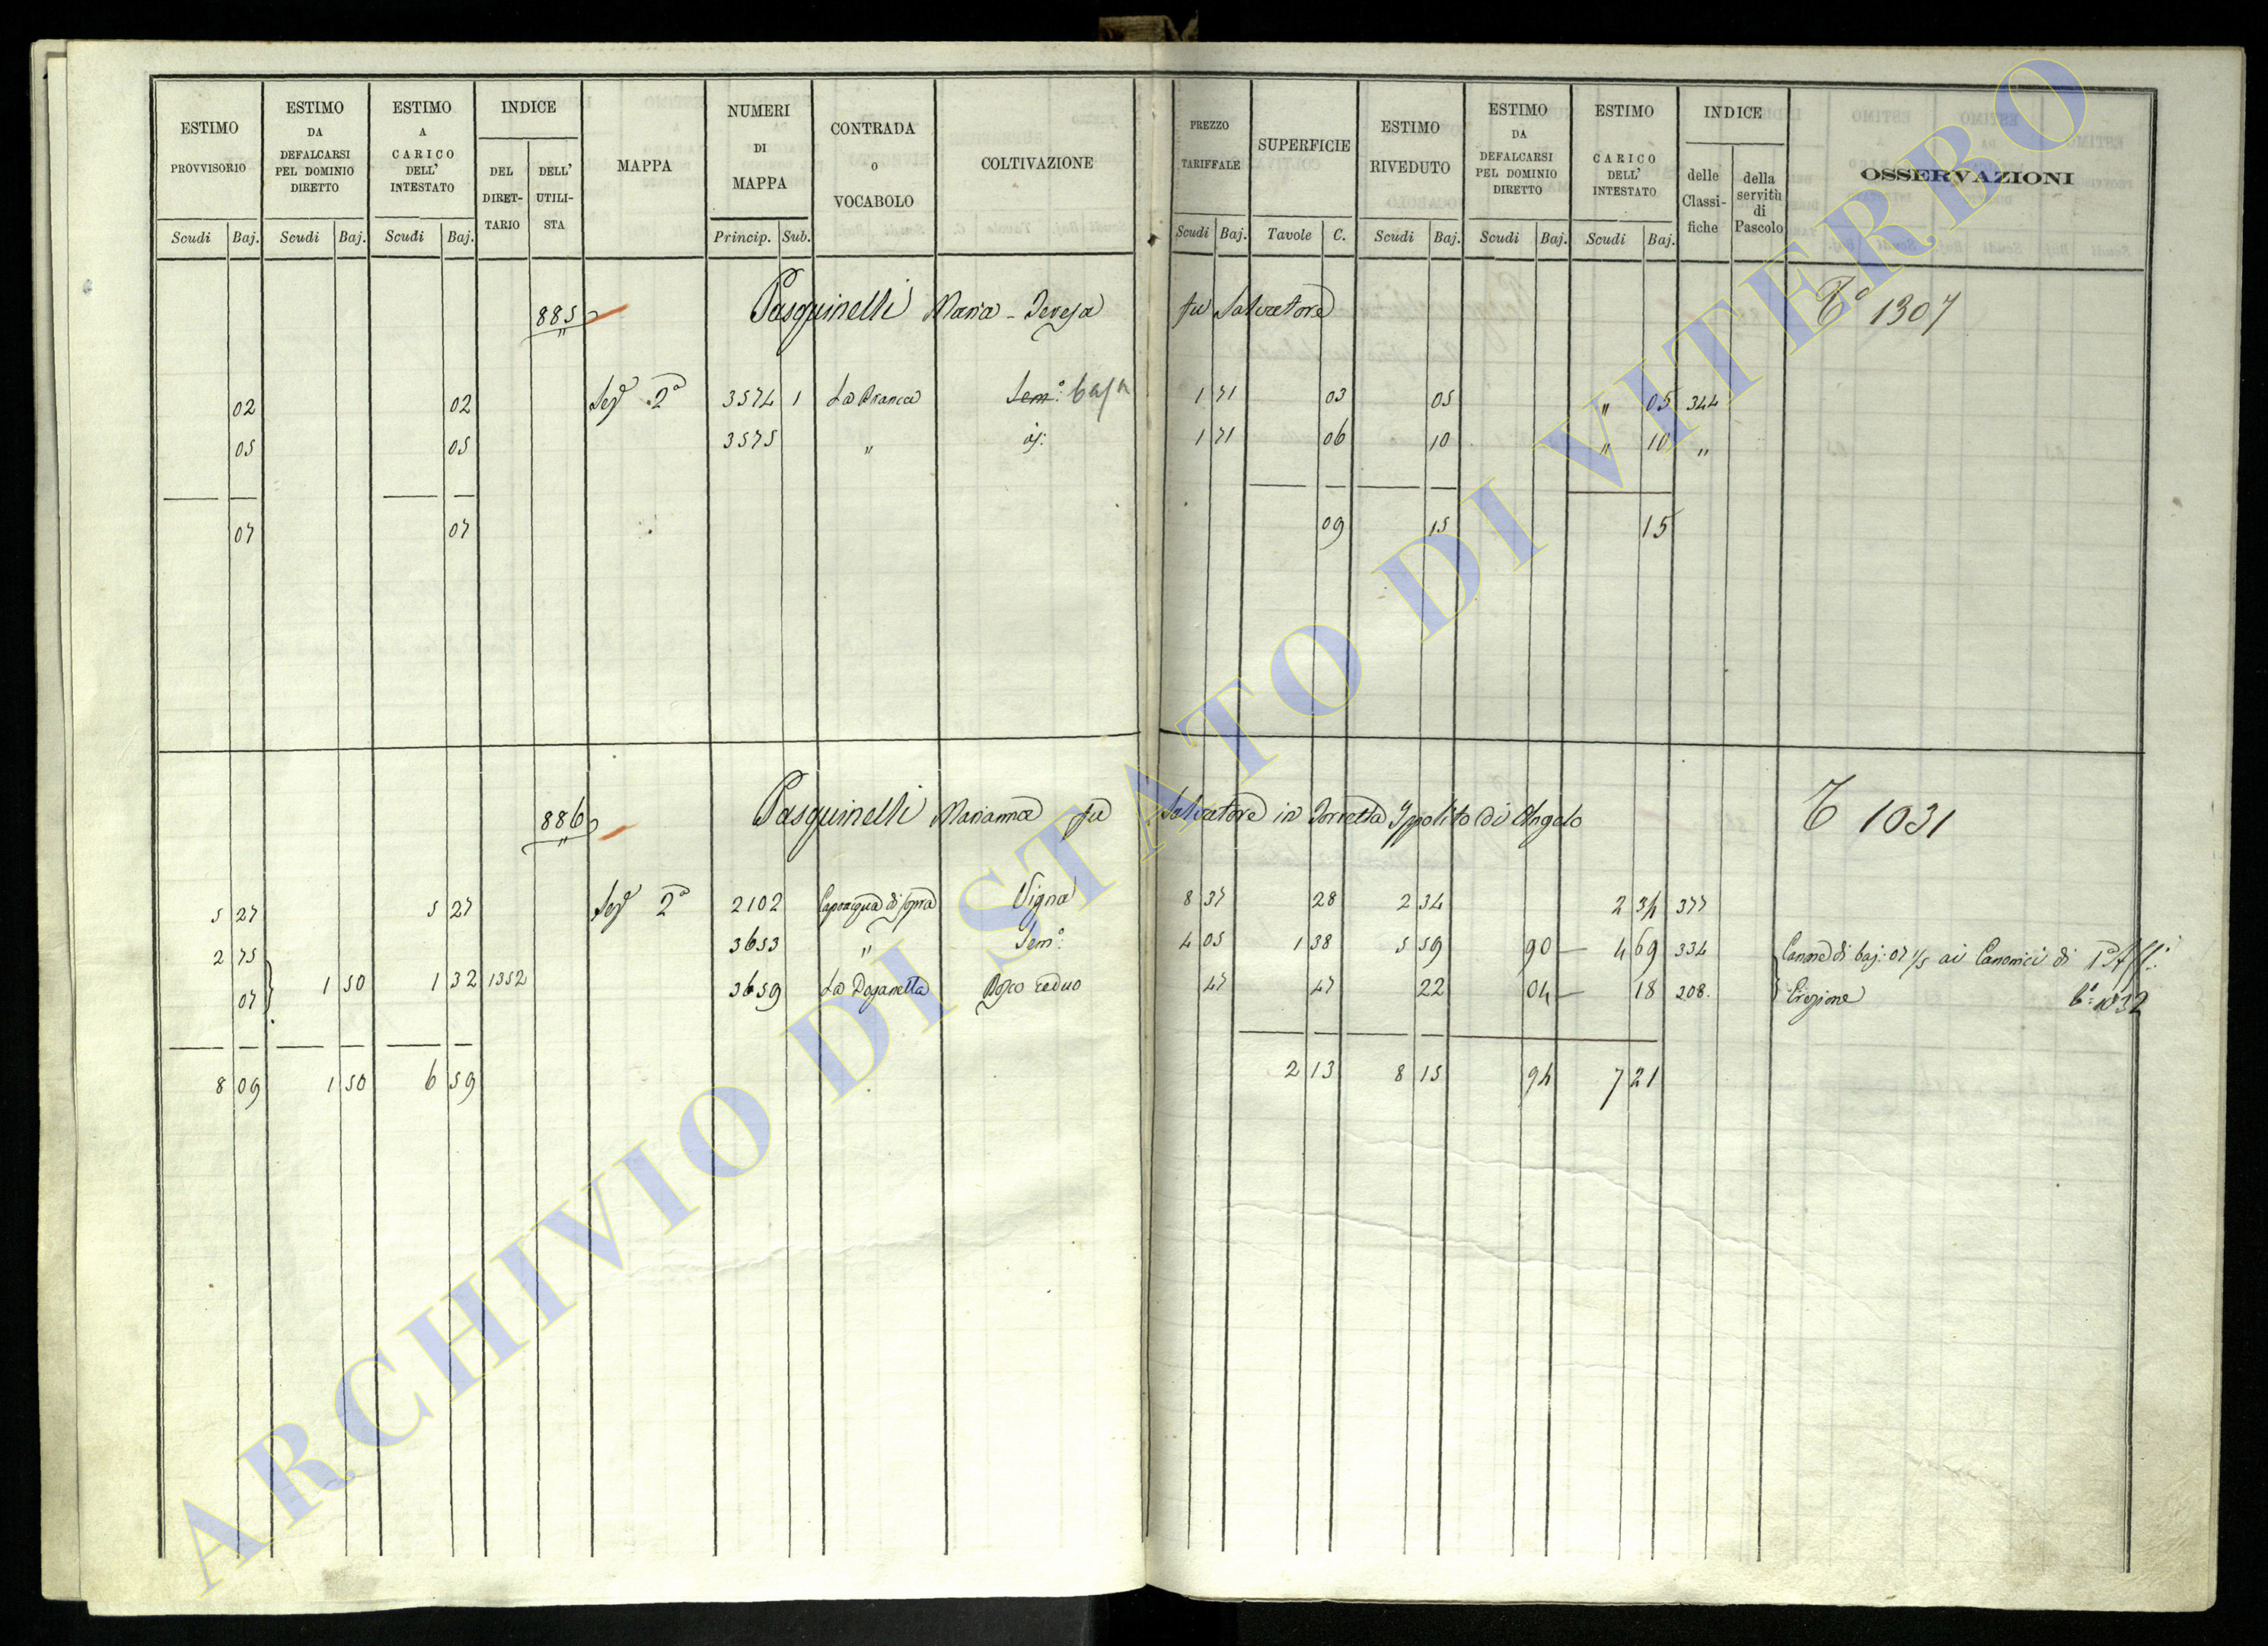 ESTIMO PROVVISORIO | ESTIMO DA DEFALCARSI PEL DOMINIO DIRETTO | ESTIMO A CARICO DELL' INTESTATO | INDICE DEL DIRET-TARIO | DELL' UTILI-STA | MAPPA | NUMERI DI MAPPA | CONTRADA O VOCABOLO | COLTIVAZIONE | PREZZO TARIFFALE | SUPERFICIE | ESTIMO RIVEDUTO | ESTIMO DA DEFALCARSI PEL DOMINIO DIRETTO | ESTIMO CARICO DELL' INTESTATO | INDICE delle Classi-fiche | della servitù di Pascolo | OSSERVAZIONI
Scudi Baj. Scudi Baj. Scudi Baj. Princip. Sub. Scudi Baj. Tavole C. Scudi Baj. Scudi Baj. Scudi Baj.
885 Pasquinelli Maria - Teresa fu Salvatore 1307
02 02 2a 3574 1 La Branca Sem: 1 71 03 05 " 05 344
05 05 3575 " 1 71 06 10 " 10 "
07 07 09 15 15
886 Pasquinelli Marianna fu Salvatore in Torretta Ippolito di Angelo 1031
5 27 5 27 2a 2102 Capoacqua di sopra Vigna 8 37 28 2 34 2 34 377
2 75 3653 " Sem: 4 05 1 38 5 59 90 4 69 334 Canone di baj: 07 1/5 ai Canonici di
07 1 50 1 32 1352 3659 La Doganella Bosco ceduo 47 47 22 04 18 208. Erezione 1032
8 09 1 50 6 59 2 13 8 15 94 7 21
ARCHIVIO DI STATO DI VITERBO